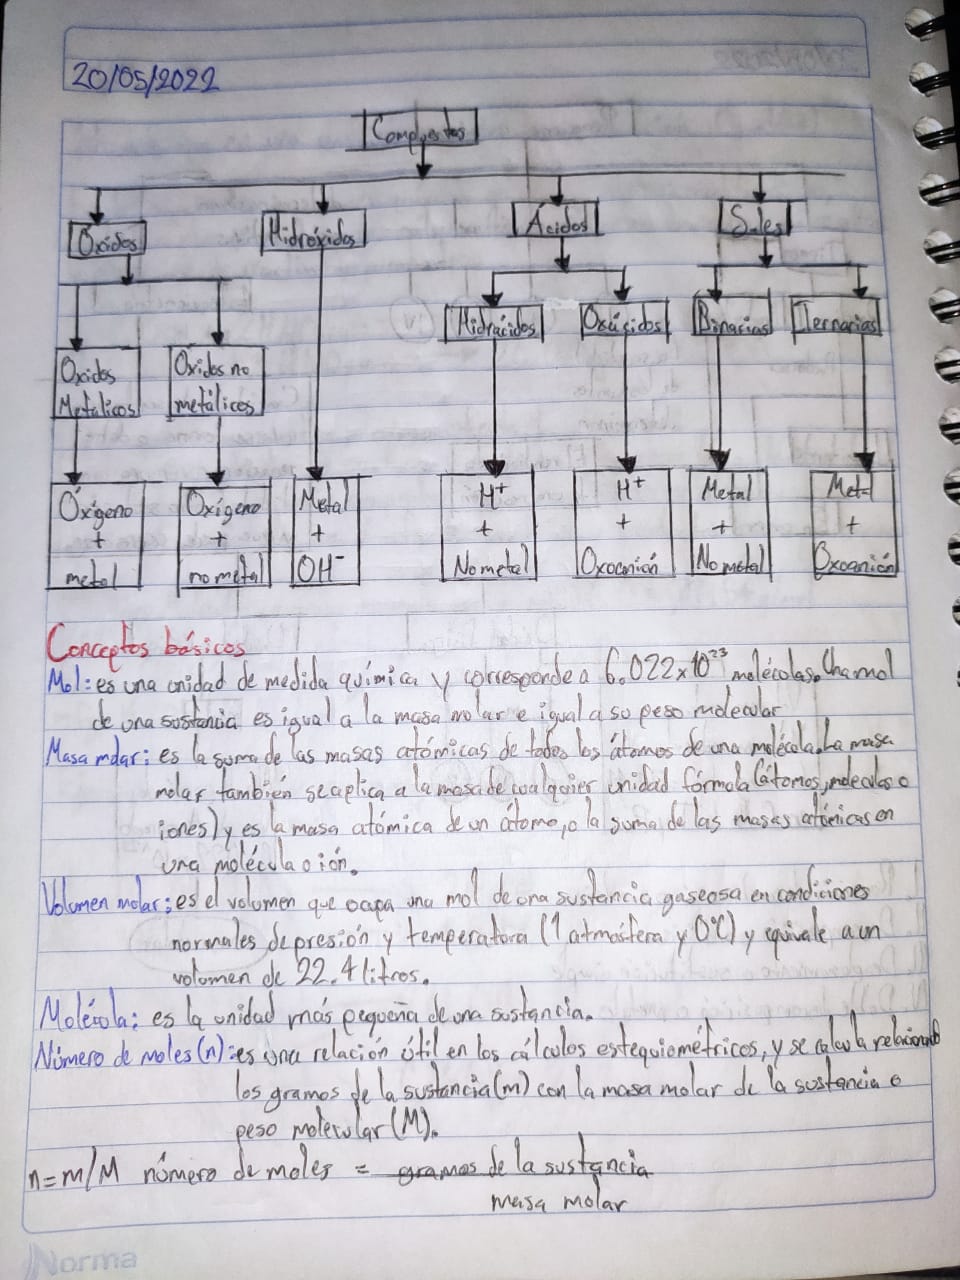 20/05/2022
Compuestos
Óxidos
Hidróxidos
Ácidos
Sales
Hidrácidos
Oxácidos
Binarias
Ternarias
Oxidos
Metalicos
Oxidos no
metálicos
Óxigeno
+
metal
Oxígeno
+
no metal
Metal
+
OH⁻
H⁺
+
No metal
H⁺
+
Oxoanión
Metal
+
No metal
Metal
+
Oxoanión
Conceptos básicos
Mol: es una unidad de medida química y corresponde a 6.022x10²³ molécolas. Una mol
de una sustancia es igual a la masa molar e igual a su peso molecular
Masa molar: es la suma de las masas atómicas de todos los átomos de una molécula. La masa
molar también se aplica a la masa de cualquier unidad fórmula (átomos, moleculas o
iones) y es la masa atómica de un átomo, o la suma de las masas atómicas en
una molécula o ión.
Volumen molar: es el volumen que ocupa una mol de una sustancia gaseosa en condiciones
normales de presión y temperatura (1 atmósfera y 0°C) y equivale a un
volumen de 22.4 litros.
Molécula: es la unidad más pequeña de una sustancia.
Número de moles (n): es una relación útil en los cálculos estequiométricos, y se calcula relacionando
los gramos de la sustancia (m) con la masa molar de la sustancia o
peso molecular (M).
n=m/M número de moles = gramos de la sustancia
masa molar
Norma